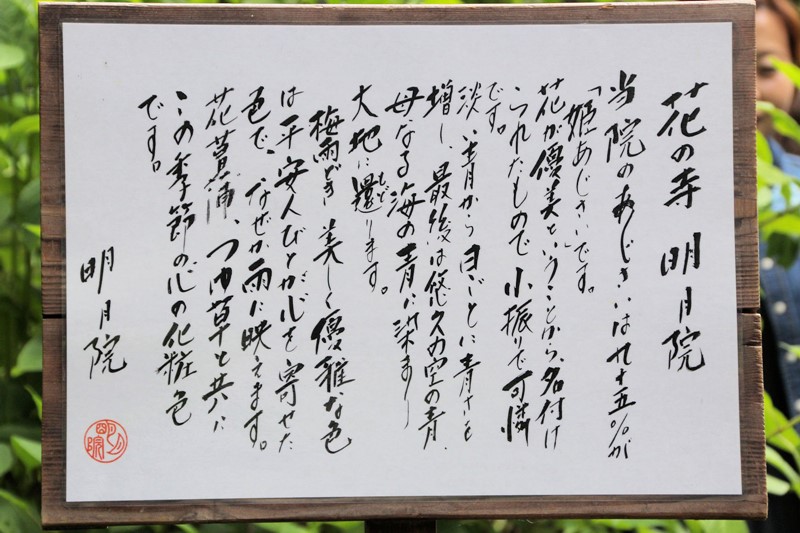 花の寺 明月院
当院のあじさいは九十五％が
「姫あじさい」です。
花が優美ということから、名付け
られたもので小振りで可憐
です。
淡い青から日ごとに青さを
増し、最後は悠久の空の青、
母なる海の青に染まり
大地に還ります。
もど
梅雨どき美しく優雅な色
は平安人びとが心を寄せた
色で、なぜか雨に映えます。
花菖蒲、つゆ草と共に
この季節の心の化粧色
です。
明月院
明月院